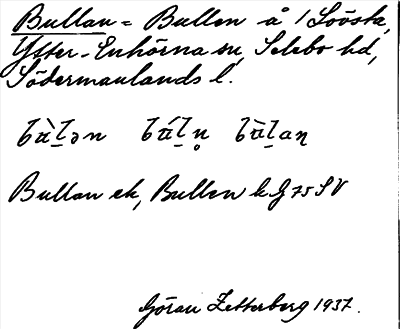 Bullan = Bullen å / Lövsta,
Ytter-Enhörna sn, Selebo hd,
Södermanlands l.
Bullan ek, Bullen k G 75 SV
Göran Zetterberg 1937.